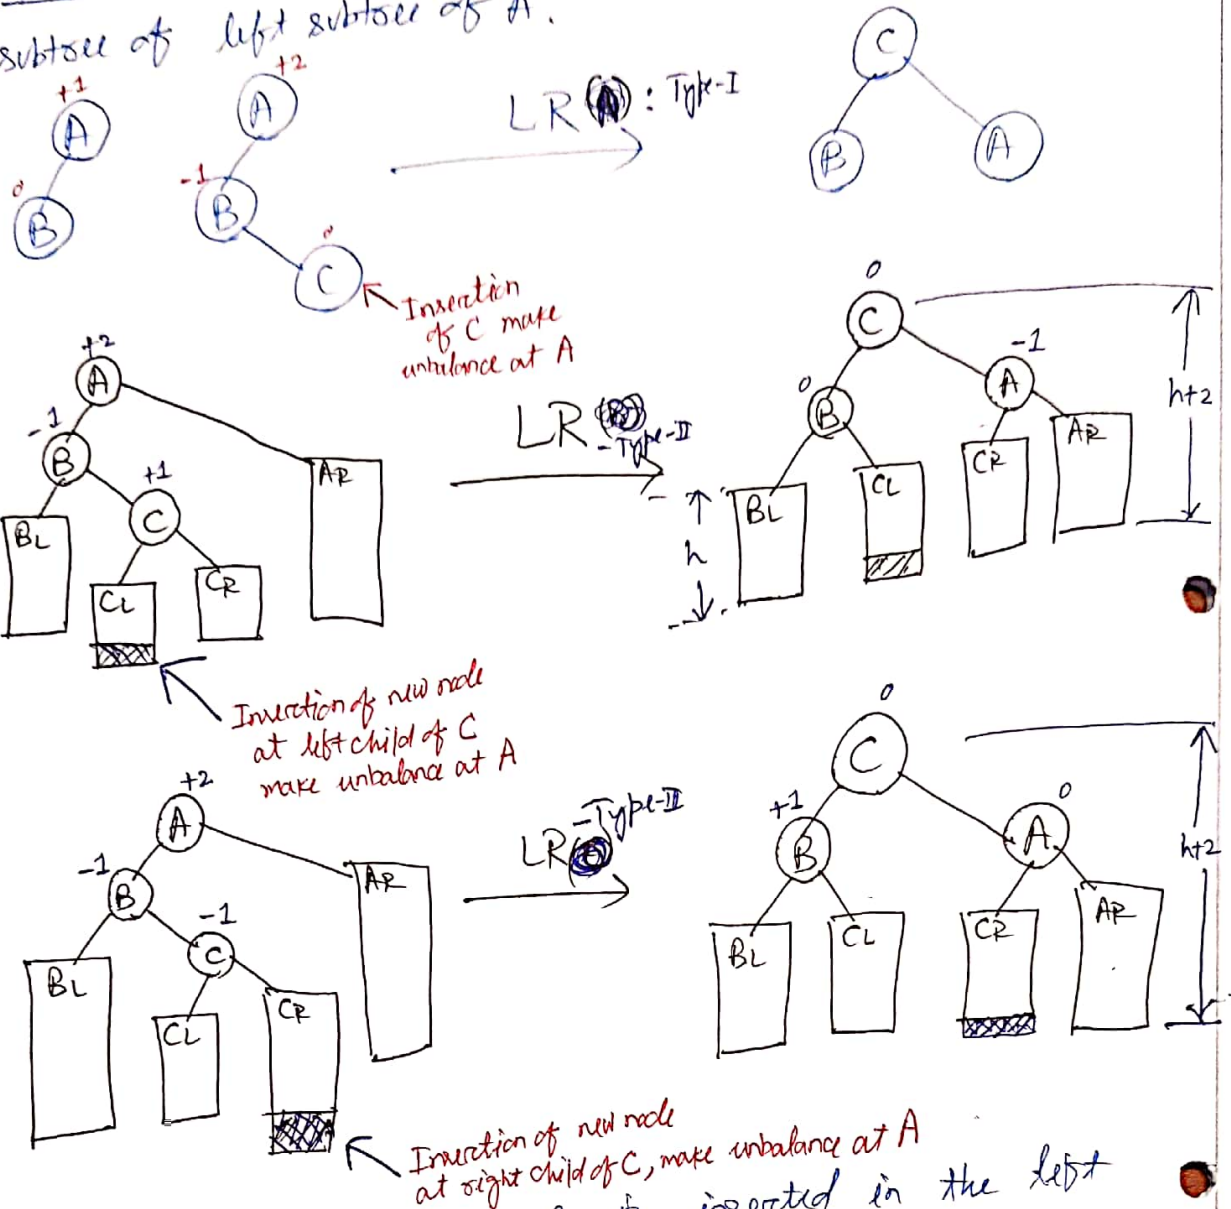 subtree of left subtree of A.
+1
A
0
B
+2
A
-1
B
0
C
LR : Type-I
C
B
A
Insertion
of C make
unbalance at A
+2
A
-1
B
+1
C
BL
CL
CR
AR
LR
-Type-II
0
C
0
B
-1
A
BL
CL
CR
AR
h
h+2
Insertion of new node
at left child of C
make unbalance at A
+2
A
-1
B
-1
C
BL
CL
CR
AR
LR
-Type-III
0
C
+1
B
0
A
BL
CL
CR
AR
h+2
Insertion of new node
at right child of C, make unbalance at A
inserted in the left